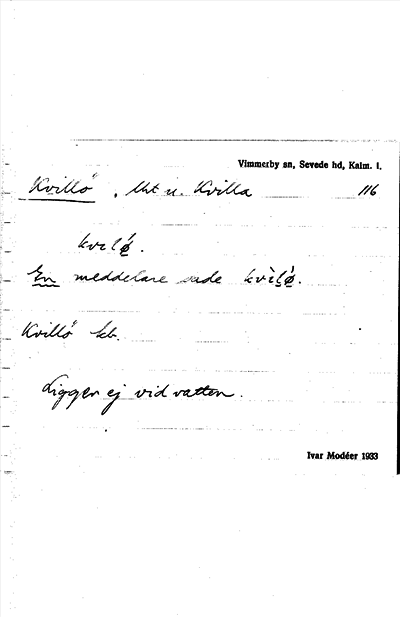 Vimmerby sn, Sevede hd, Kalm. l.
Kvillö, lht u. Kvilla 116
kvilǿ.
En meddelare sade kvìlǿ.
Kvillö kb.
Ligger ej vid vatten.
Ivar Modéer 1933